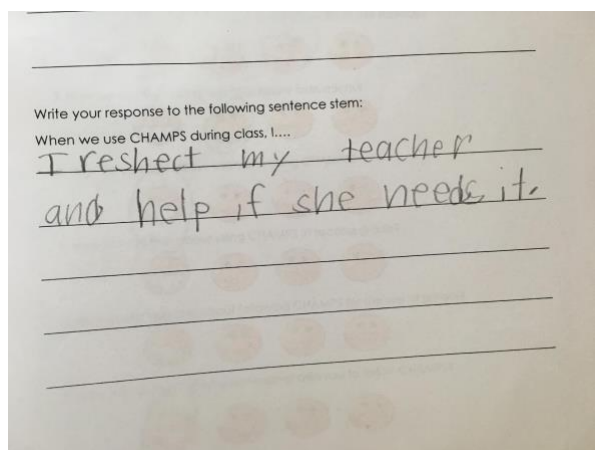 Write your response to the following sentence stem:
When we use CHAMPS during class, I....
I reshect my teacher
and help if she needs it.